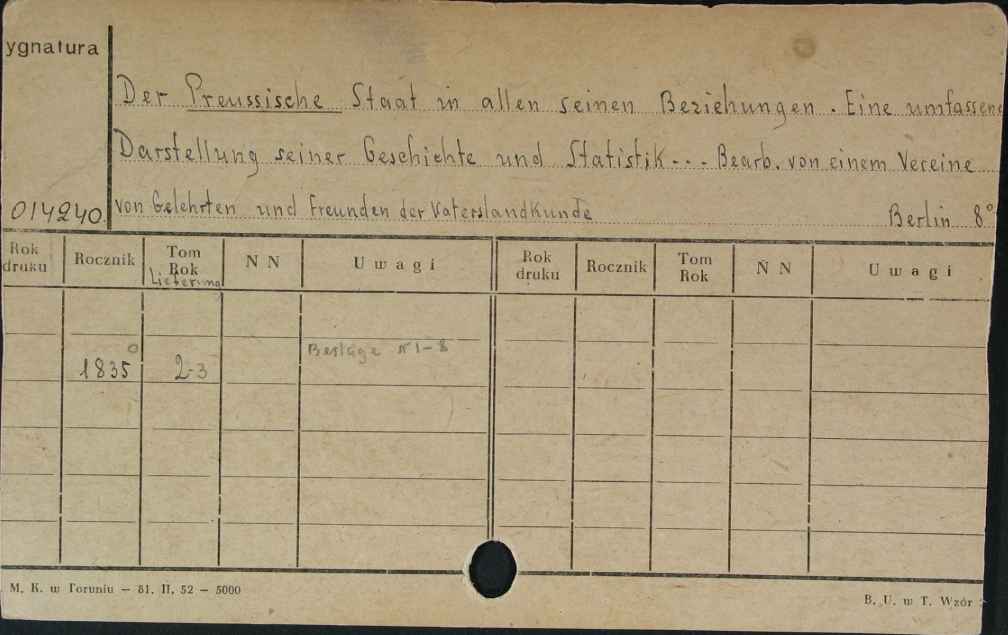 ygnatura
Der Preussische Staat in allen seinen Beziehungen. Eine umfassend
Darstellung seiner Geschichte und Statistik... Bearb. von einem Vereine
014240 von Gelehrten und Freunden der Vaterslandkunde Berlin 8°
Rok druku Rocznik Tom Rok Lieferung N N U w a g i Rok druku Rocznik Tom Rok N N U w a g i
Beilage N 1-8
1835 2-3
M. K. w Toruniu — 51. II. 52 — 5000
B. U. w T. Wzór